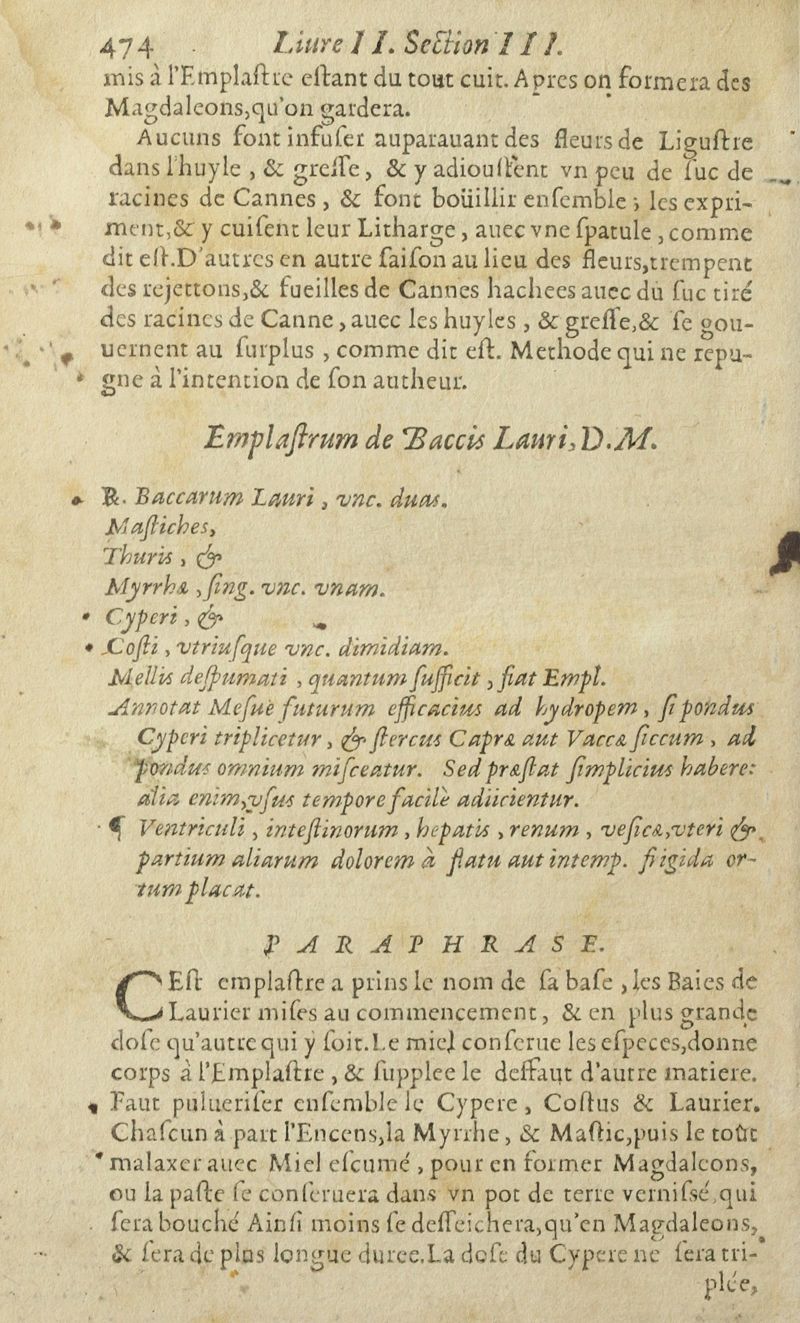 474 Liure II. Section III.
mis à l'Emplaſtre eſtant du tout cuit. Apres on formera des
Magdaleons,qu'on gardera.
Aucuns font infuſer auparauant des fleurs de Liguſtre
dans l'huyle , & greſſe , & y adiouſtent vn peu de ſuc de
racines de Cannes , & font boüillir enſemble ; les expri-
ment,& y cuiſent leur Litharge , auec vne ſpatule , comme
dit eſt.D'autres en autre ſaiſon au lieu des fleurs,trempent
des rejettons,& fueilles de Cannes hachees auec du ſuc tiré
des racines de Canne , auec les huyles , & greſſe,& ſe gou-
uernent au ſurplus , comme dit eſt. Methode qui ne repu-
gne à l'intention de ſon autheur.
Emplaſtrum de Baccis Lauri, D.M.
℞. Baccarum Lauri , vnc. duas.
Maſtiches,
Thuris , &
Myrrhæ , ſing. vnc. vnam.
Cyperi , &
Coſti , vtriuſque vnc. dimidiam.
Mellis deſpumati , quantum ſufficit , fiat Empl.
Annotat Meſue futurum efficacius ad hydropem , ſi pondus
Cyperi triplicetur , & ſtercus Capræ aut Vaccæ ſiccum , ad
pondus omnium miſceatur. Sed præſtat ſimplicius habere:
alia enim,vſus tempore facilè adiicientur.
¶ Ventriculi , inteſtinorum , hepatis , renum , veſicæ,vteri &
partium aliarum dolorem à flatu aut intemp. frigida or-
tum placat.
PARAPHRASE.
CEſt emplaſtre a prins le nom de ſa baſe , les Baies de
Laurier miſes au commencement , & en plus grande
doſe qu'autre qui y ſoit.Le miel conſerue les eſpeces,donne
corps à l'Emplaſtre , & ſupplee le deffaut d'autre matiere.
Faut pulueriſer enſemble le Cypere , Coſtus & Laurier.
Chaſcun à part l'Encens,la Myrrhe , & Maſtic,puis le toût
malaxer auec Miel eſcumé , pour en former Magdaleons,
ou la paſte ſe conſeruera dans vn pot de terre verniſsé,qui
ſera bouché Ainſi moins ſe deſſeichera,qu'en Magdaleons,
& ſera de plus longue duree.La doſe du Cypere ne ſera tri-
plée,